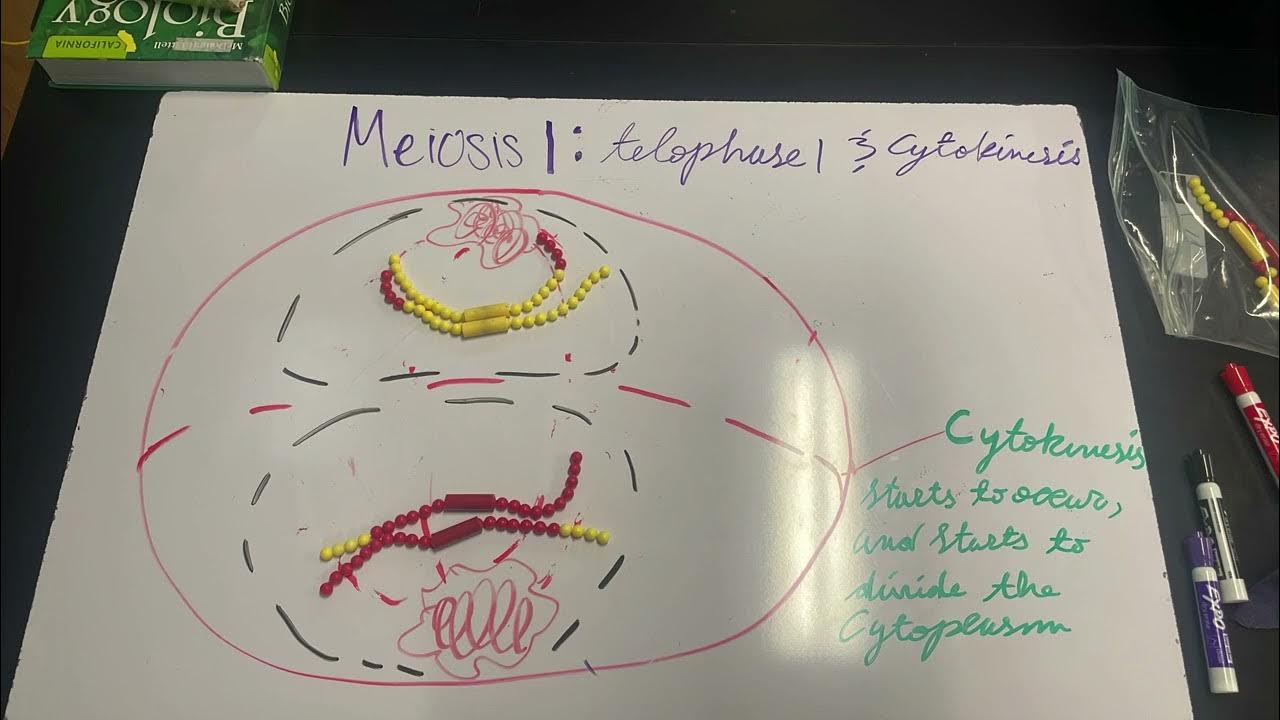 Biology
McDougal Littell
CALIFORNIA
Meiosis I: telophase I & Cytokinesis
Cytokinesis
starts to occur,
and starts to
divide the
Cytoplasm
EXPO
EXPO